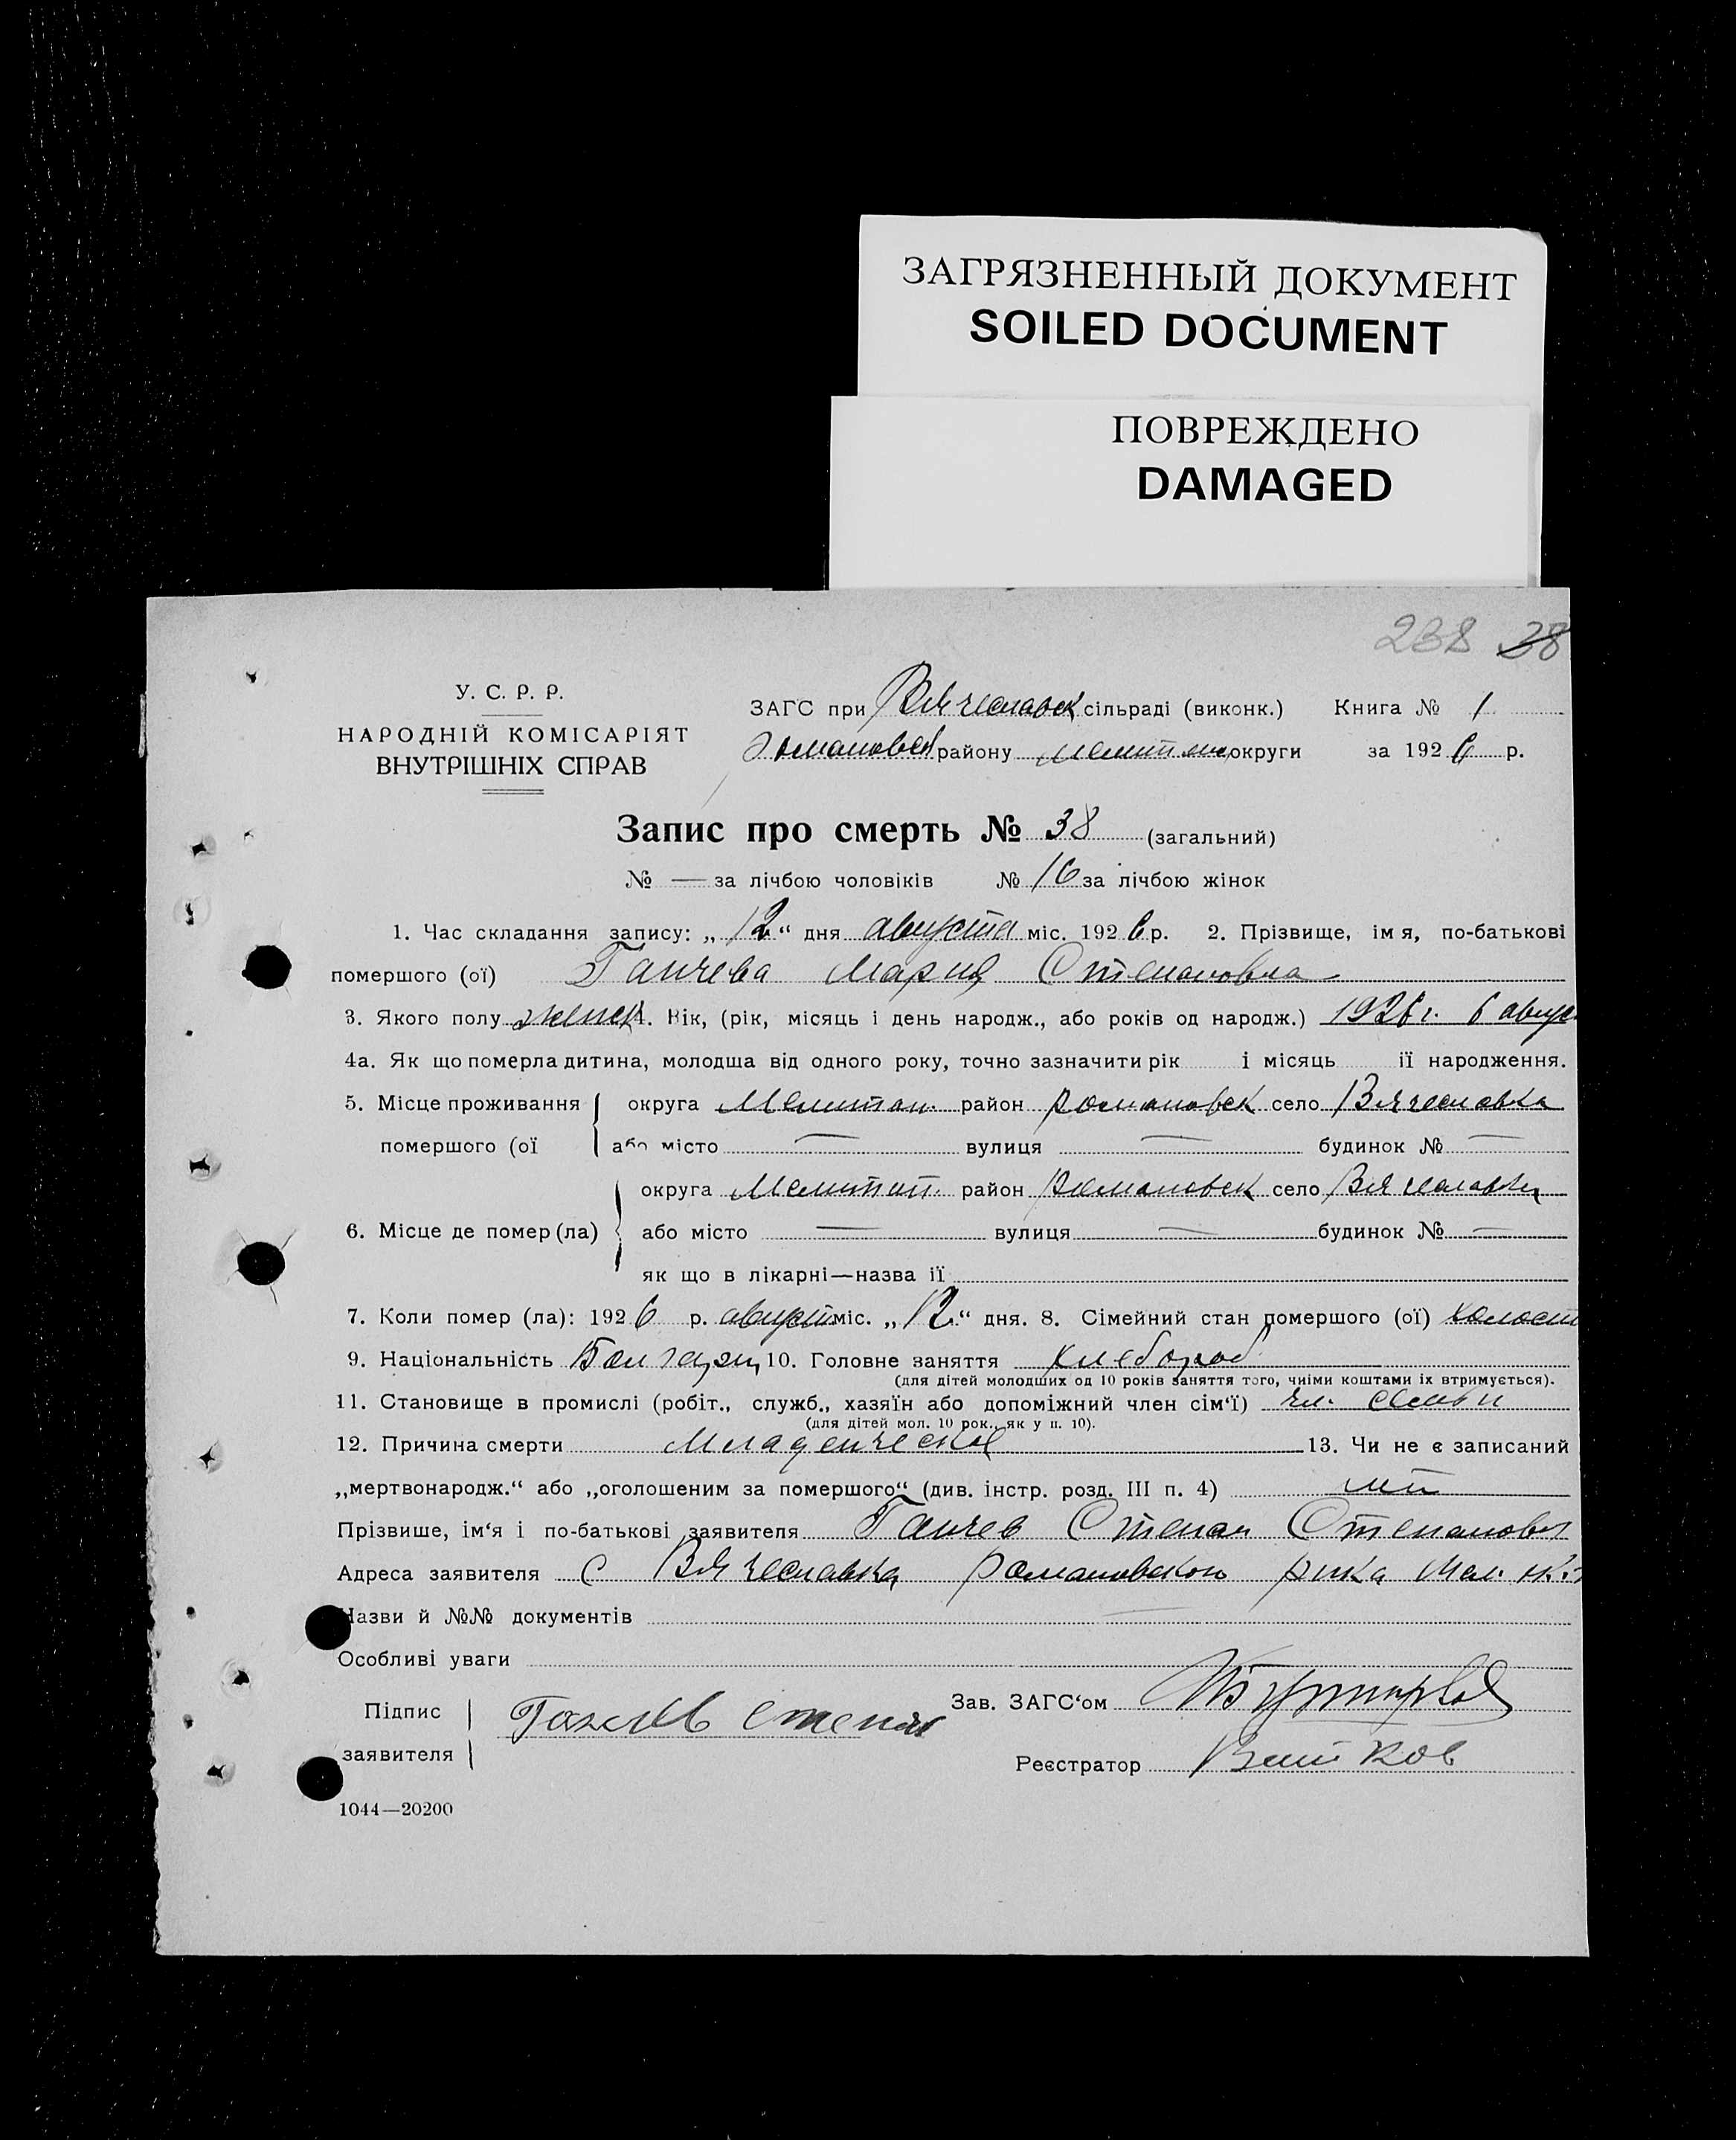 ЗАГРЯЗНЕННЫЙ ДОКУМЕНТ
SOILED DOCUMENT
ПОВРЕЖДЕНО
DAMAGED
238 38
У. С. Р. Р.
НАРОДНІЙ КОМІСАРІЯТ
ВНУТРІШНІХ СПРАВ
ЗАГС при Вячеславск сільраді (виконк.) Книга № 1
Романовск району Мелитоп округи за 1926 р.
Запис про смерть № 38 (загальний)
№ — за лічбою чоловіків № 16 за лічбою жінок
1. Час складання запису: „12“ дня августа міс. 1926 р. 2. Прізвище, імя, по-батькові
помершого (ої) Ганчева Мария Степановна
3. Якого полу женск 4. Вік, (рік, місяць і день народж., або років од народж.) 1926 г. 6 авгус
4а. Як що померла дитина, молодша від одного року, точно зазначити рік і місяць ії народження.
5. Місце проживання помершого (ої округа Мелитоп. район Романовск село Вячеславка
або місто — вулиця — будинок № —
6. Місце де помер (ла) округа Мелитоп. район Романовск село Вячеславка
або місто — вулиця — будинок № —
як що в лікарні—назва ії
7. Коли помер (ла): 1926 р. август міс. „12“ дня. 8. Сімейний стан помершого (ої) холост
9. Національність Болгарин 10. Головне заняття хлебороб
(для дітей молодших од 10 років заняття того, чиїми коштами іх втримується).
11. Становище в промислі (робіт., служб., хазяїн або допоміжний член сім‘ї) чл. семьи
(для дітей мол. 10 рок., як у п. 10).
12. Причина смерти Младенческая 13. Чи не є записаний
„мертвонародж.“ або „оголошеним за помершого“ (див. інстр. розд. III п. 4)
Прізвише, ім‘я і по-батькові заявителя Ганчев Степан Степанович
Адреса заявителя С Вячеславка Романовского р-на Мел.
Назви й №№ документів —
Особливі уваги
Підпис заявителя Ганчев Степан
Зав. ЗАГС‘ом
Реєстратор
1044—20200